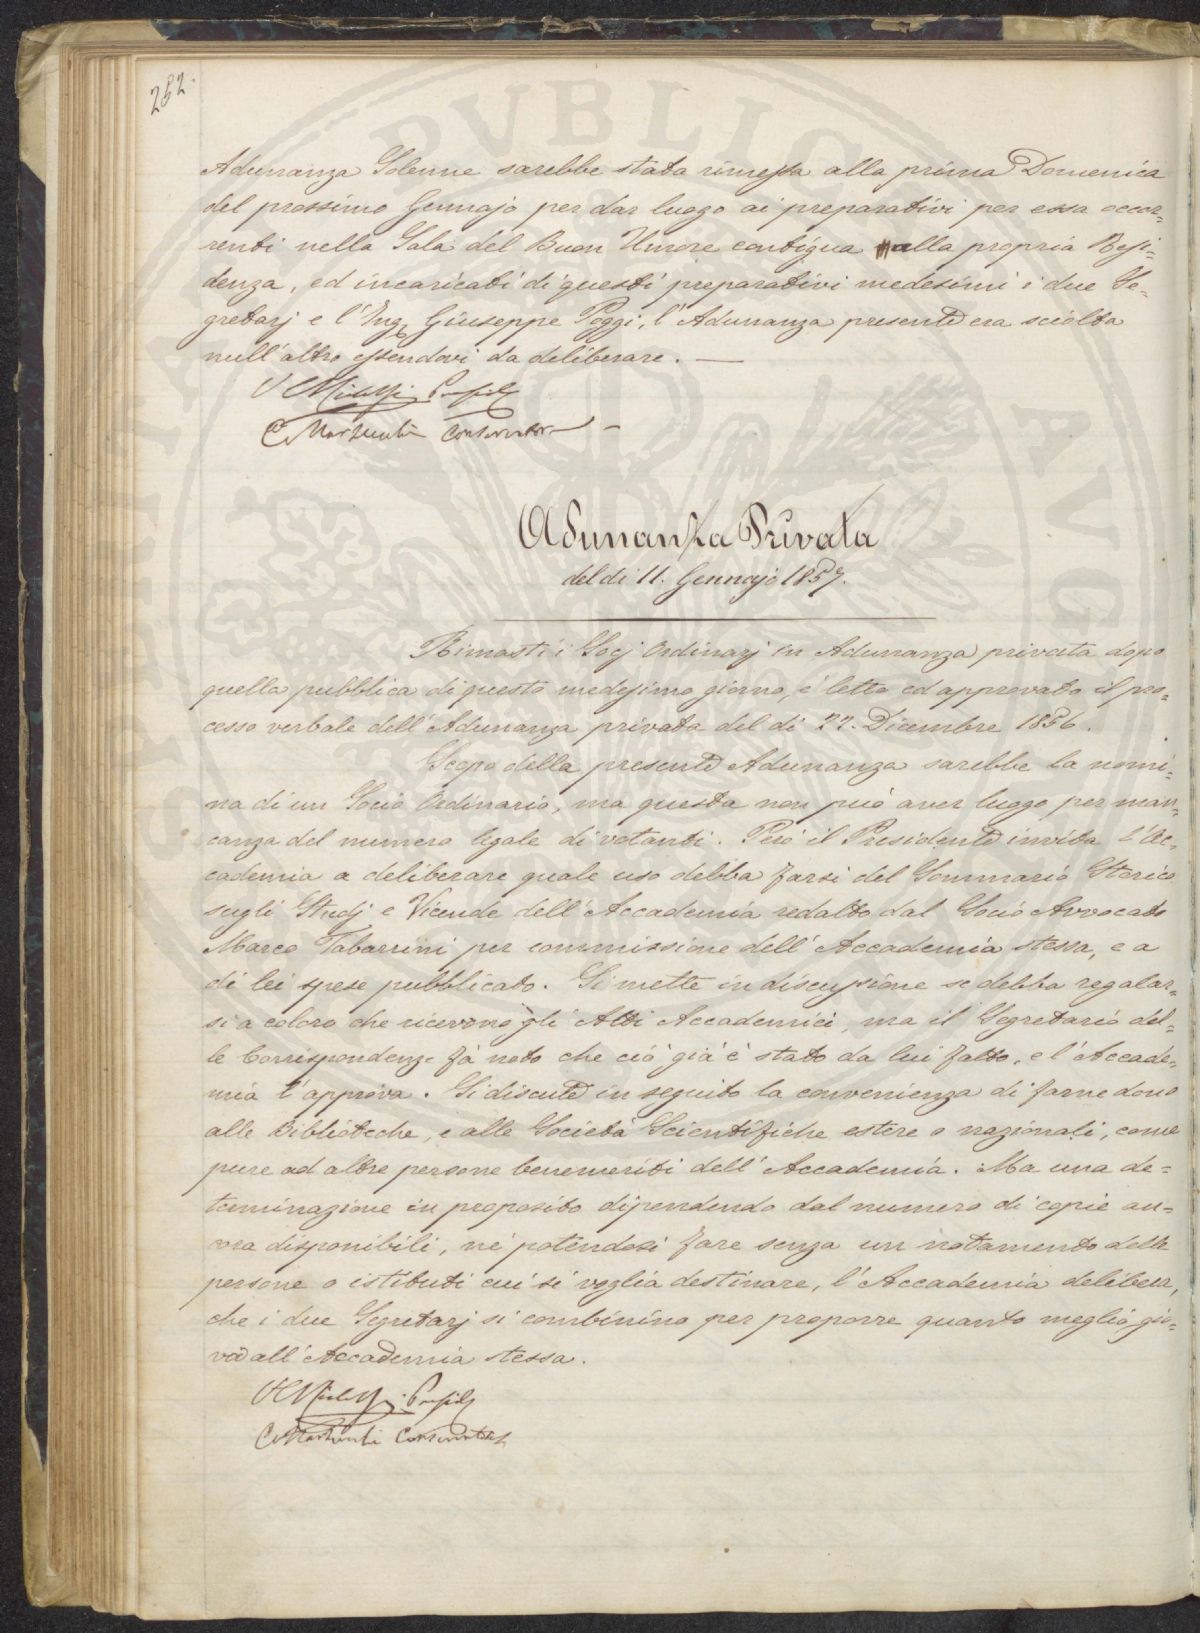 252.
Adunanza Solenne sarebbe stata rimessa alla prima Domenica
del prossimo Gennajo per dar luogo ai preparativi per essa occor=
renti nella Sala del Buon Umore contigua alla propria Resi=
denza, ed incaricati di questi preparativi medesimi i due Se=
gretarj e l'Ing. Giuseppe Poggi, l'Adunanza presente era sciolta
null'altro essendovi da deliberare. —
C Martelli Conservatore —
Adunanza Privata
del dì 11. Gennajo 1857.
Rimasti i Socj Ordinarj in Adunanza privata dopo
quella pubblica di questo medesimo giorno, è letto ed approvato il pro=
cesso verbale dell'Adunanza privata del dì 22. Dicembre 1856.
Scopo della presente Adunanza sarebbe la nomi=
na di un Socio Ordinario, ma questa non può aver luogo per man=
canza del numero legale di votanti. Però il Presidente invita l'Ac=
cademia a deliberare quale uso debba farsi del Sommario Storico
sugli Studj e Vicende dell'Accademia redatto dal Socio Avvocato
Marco Tabarrini per commissione dell'Accademia stessa, e a
di lei spese pubblicato. Si mette in discussione se debba regalar=
si a coloro che ricevono gli Atti Accademici, ma il Segretario del=
le Corrispondenze fà noto che ciò già è stato da lui fatto, e l'Accade=
mia l'approva. Si discute in seguito la convenienza di farne dono
alle Biblioteche, e alle Società Scientifiche estere o nazionali, come
pure ad altre persone benemeriti dell'Accademia. Ma una de=
terminazione in proposito dipendendo dal numero di copie an=
cora disponibili, nè potendosi fare senza un notamento delle
persone o istituti cui si voglia destinare, l'Accademia delibera,
che i due Segretarj si combinino per proporre quanto meglio gio=
va all'Accademia stessa.
PVBLICA AVG